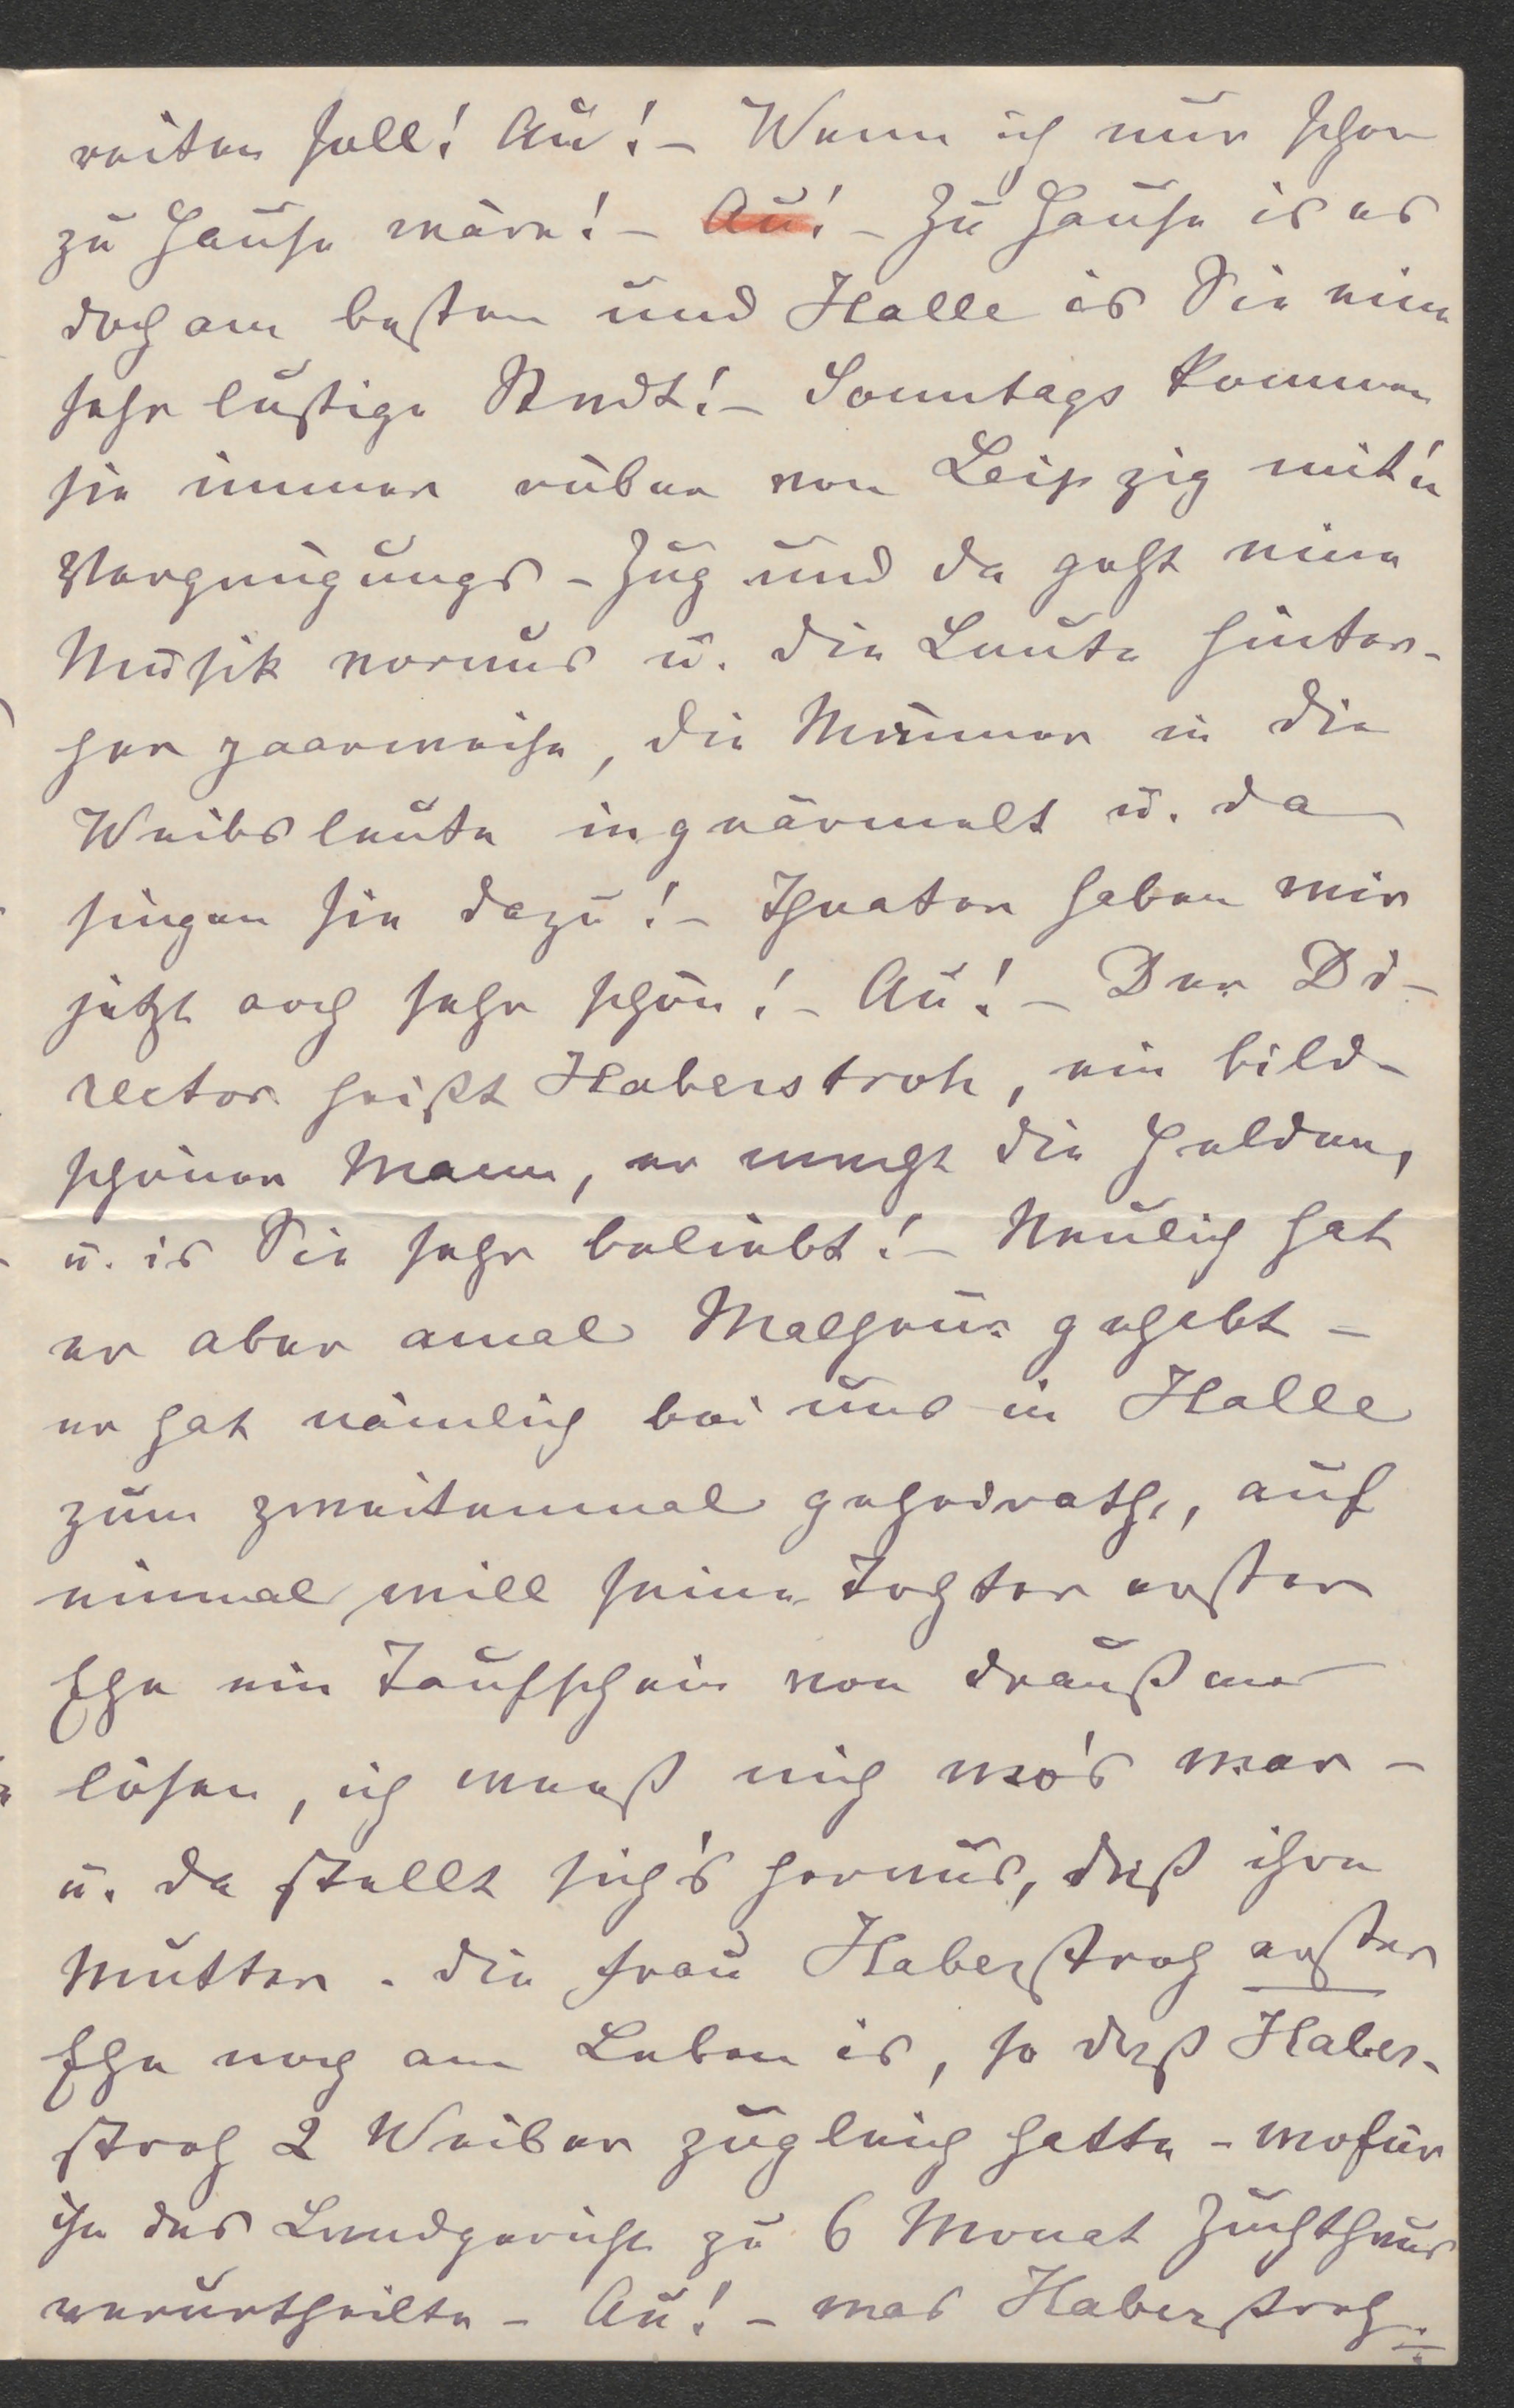 reiten soll! Au! – Wenn ich nur schon
zu Hause wäre! – Au! – Zu Hause is es
doch am besten und Halle is Sie eine
sehr lustige Stadt! – Sonntags kommen
sie immer rüber von Leipzig mit'n
Vergnügungs-Zug und da geht eine
Musik voraus u. die Leute hinter-
her paarweise, die Männer in die
Weibsleute ingeärmelt u. da
singen sie dazu! – Theater haben wir
jetzt och sehr schön! – Au! – Der Di-
rector heißt Haberstroh, ein bild-
schöner Mann, er macht die Helden,
u. is Sie sehr beliebt! – Neulich hat
er aber amal Malheur gehabt –
er hat nämlich bei uns in Halle
zum zweitenmal geheirath, auf
einmal will seine Tochter erster
Ehe ein Taufschein von draußen
lösen, ich weeß nich wo's war –
u. da stellt sich's heraus, daß ihre
Mutter. die Frau Haberstroh erster
Ehe noch am Leben is, so daß Haber-
stroh 2 Weiber zugleich hatte – wofür
ihn das Landgericht zu 6 Monat Zuchthaus
verurtheilte – Au! – was Haberstroh